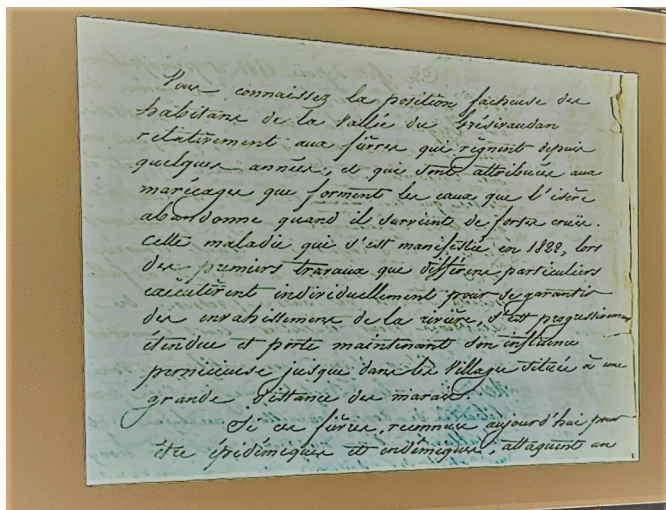 Vous connaissez la position facheuse des
habitans de la Vallée du Grésivaudan
relativement aux fièvres qui règnent depuis
quelques années, et qui sont attribuées aux
marécages que forment les eaux que l'isère
abandonne quand il survient de fortes crues.
Cette maladie qui s'est manifestée en 1822, lors
des premiers travaux que différens particuliers
exécutèrent individuellement pour se garantir
des envahissemens de la rivière, s'est progressivement
étendue et porte maintenant son influence
pernicieuse jusque dans les Villages situés à une
grande distance des marais.
Si ces fièvres, reconnues aujourd'hui pour
être épidémiques et endémiques, attaquent un